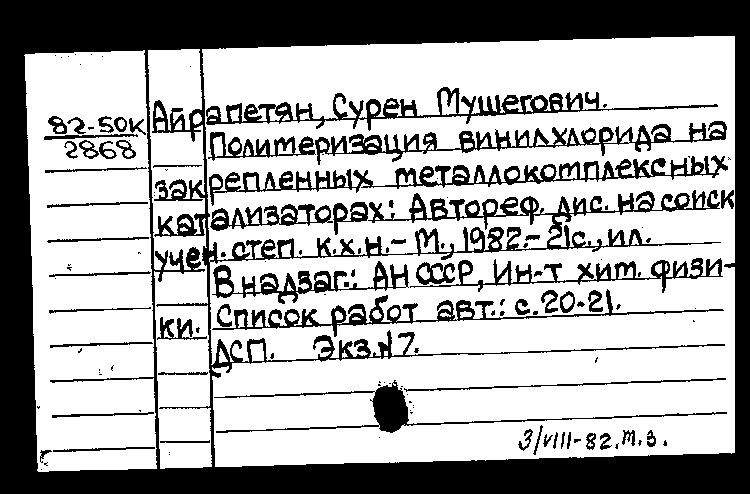 82-50к
2868
Айрапетян, Сурен Мушегович.
Полимеризация винилхлорида на
закрепленных металлокомплексных
катализаторах: Автореф. дис. на соиск
учен. степ. к.х.н. - М., 1982. - 21с., ил.
В надзаг.: АН СССР, Ин-т хим. физи-
ки. Список работ авт.: с. 20-21.
ДСП. Экз. №7.
3/VIII-82. т.з.